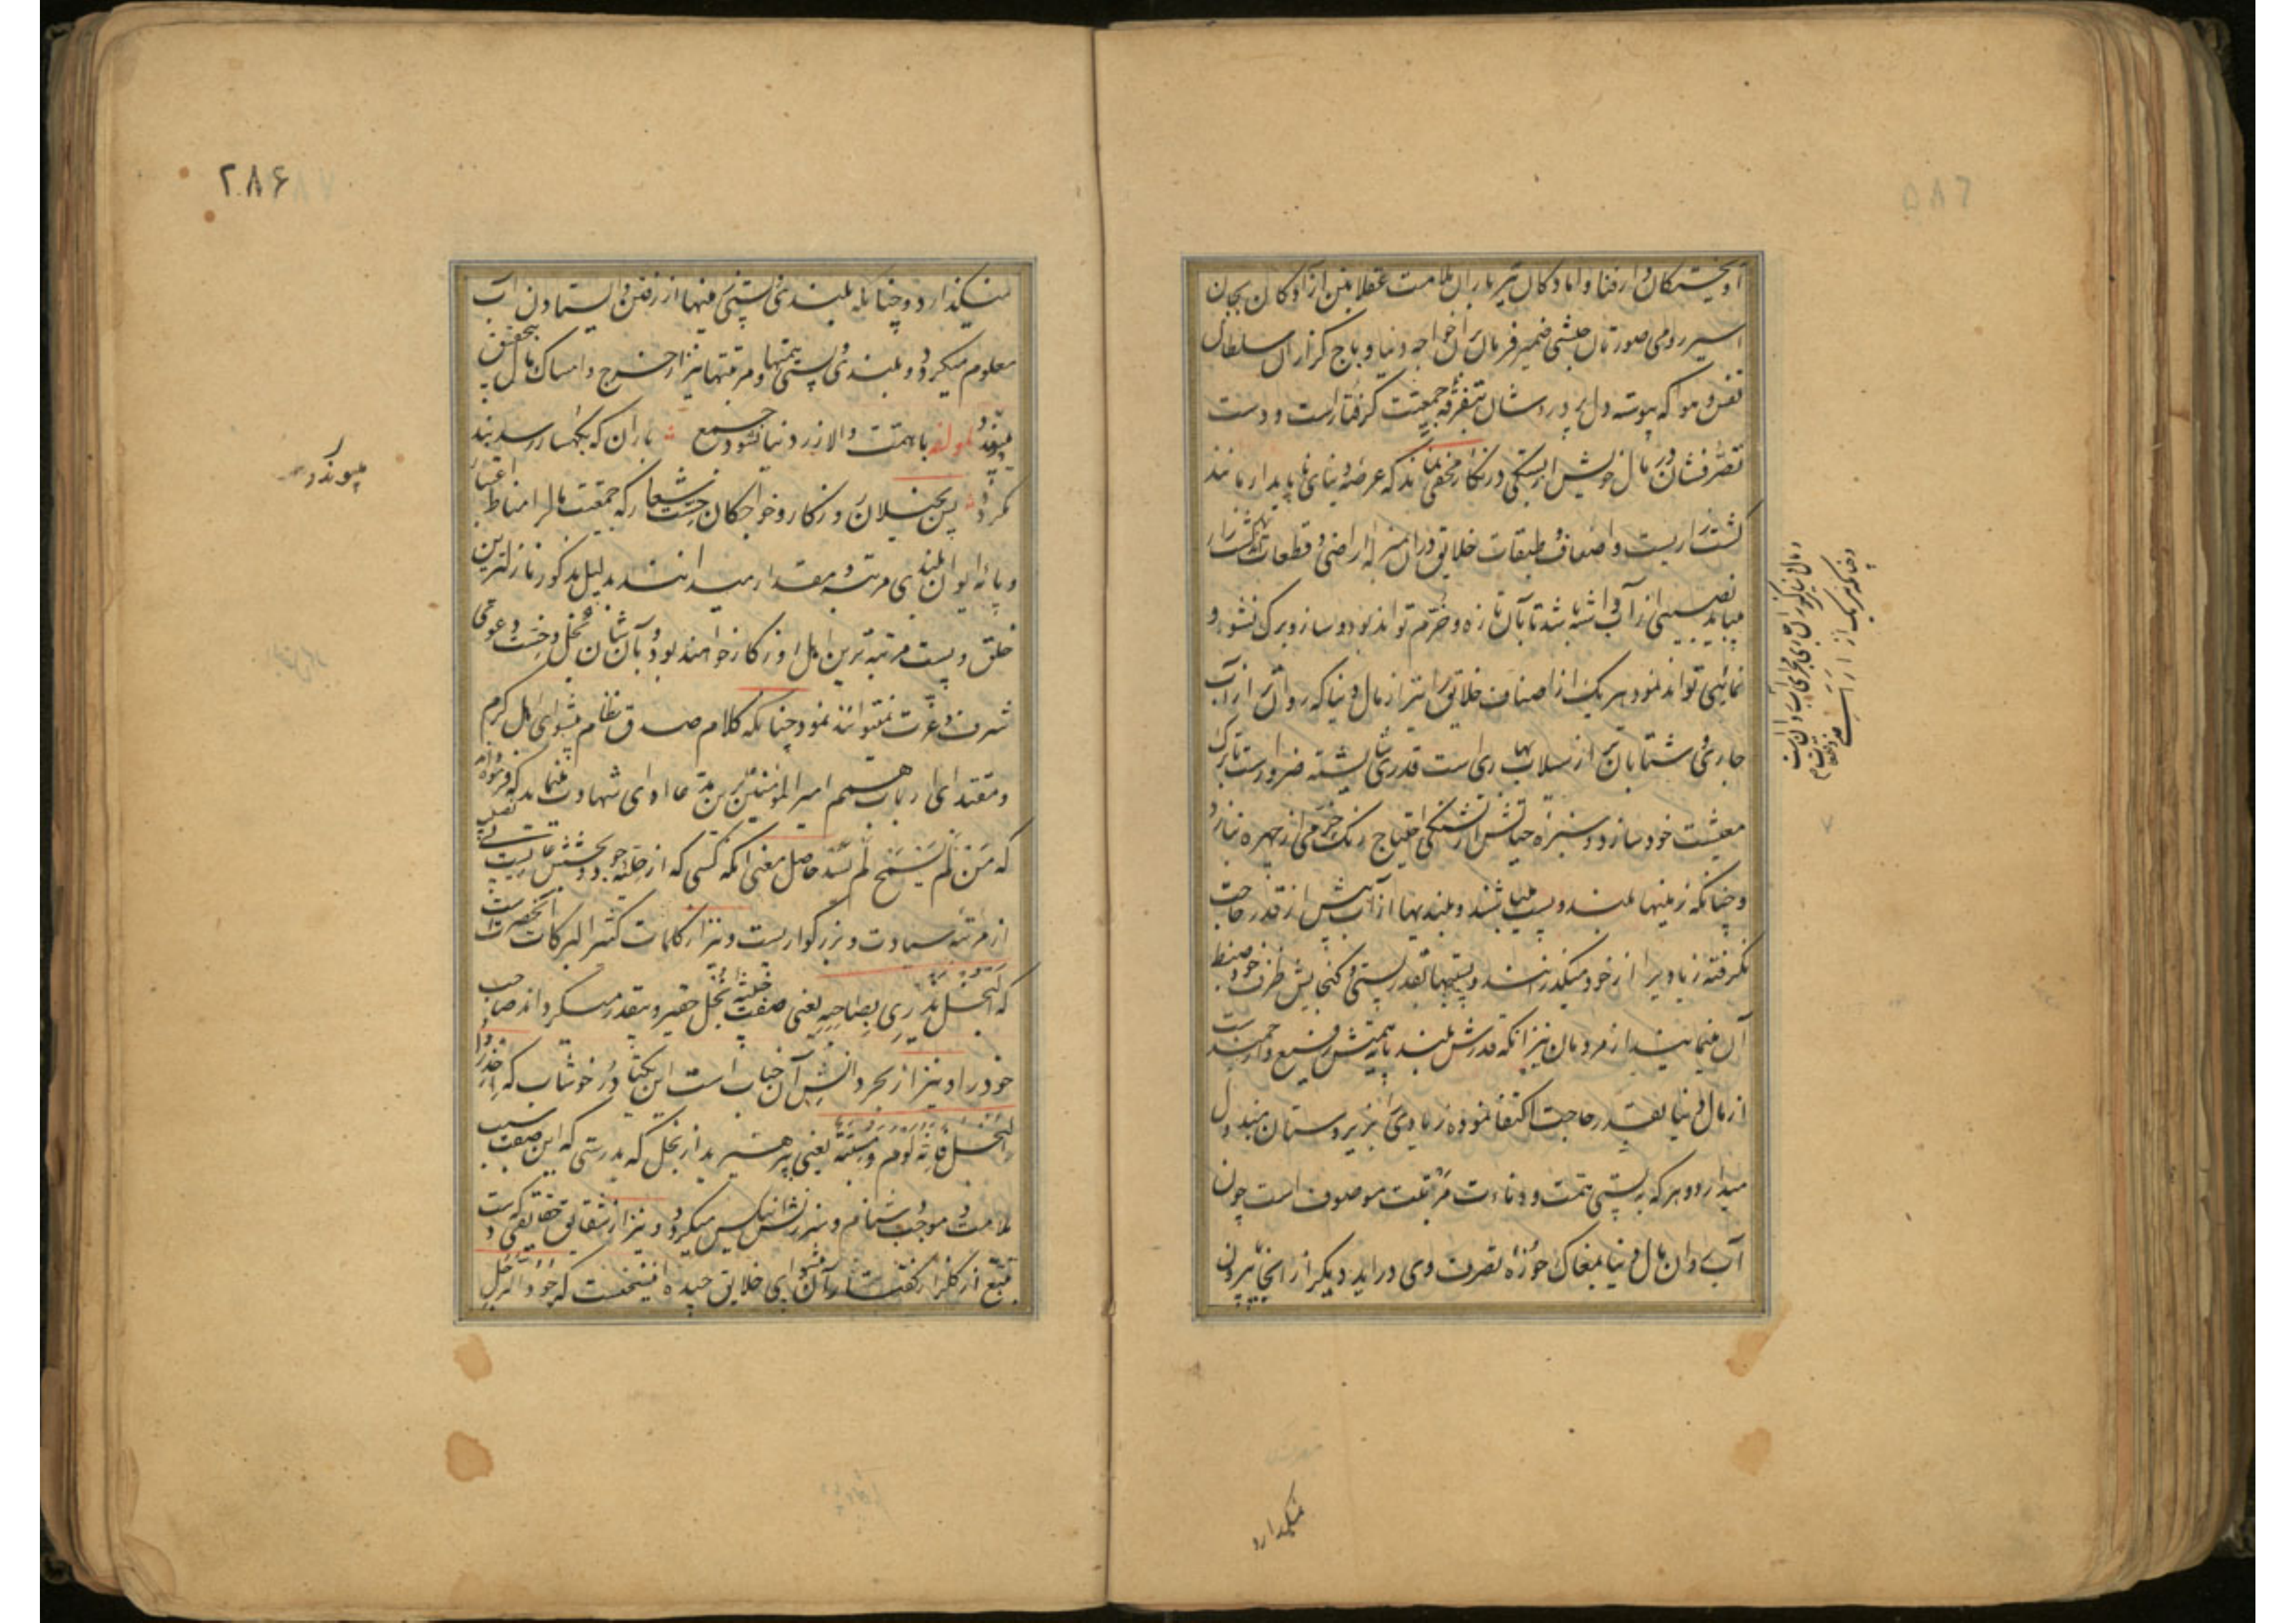 آویختکان دار فنا و اماد کان تیر باران ملامت عقلا بتن ازاد کان بجان
اسیر رومی صورتان حبشی ضمیر فرمان بران خواجه دنیا و باج کزاران سلطان
نفس و هوا که پیوسته دل پر دردشان بتفرقه جمعیت کرفتارست و دست
تصرفشان در مال خویش از بستکی در نکار مخفی نماند که عرصه دنیای ناپایدار مانند
کشت زاریست و اصناف و طبقات خلایق در ان بمنزله اراضی و قطعات آن کشت زار
میباید نصیبی از آب داشته باشد تا بآن تازه و خرم تواند بود و ساز و برک نشو و
نمائی تواند نمود هر یک از اصناف خلایق را نیز از مال دنیا که روان تر از آب
جاری و شتابان تر از سیلاب بهاریست قدری شایسته ضرورست تا برک
معیشت خود سازد و سبزه حیاتش از تشنکی احتیاج رنک خرمی از چهره نبازد
و چنانکه زمینها بلند و پست میباشند و بلندیها از آب بیش از قدر حاجت
نکرفته زیاد را از خود میکذرانند و پستیها بقدر پستی و کنجایش ظرف خود ضبط
آن مینمایند از مردمان نیز انکه قدرش بلند پایه همتش رفیع و ارجمندست
از مال دنیا بقدر حاجت اکتفا نموده زیادی را بزیردستان بذل
میدارد و هر که به پستی همت و دنائت مرتبت موصوف است چون
آب روان مال دنیا بمغاک حوزه تصرف وی دراید دیکر از انجا بیرون
نمیکذارد
۲۸۶
نمیکذارد و چنانکه بلندی و پستی زمینها از رفتن و ایستادن آب
معلوم میکردد بلندی و پستی همتها و مرتبتها نیز از خرج و امساک مال بتحقیق
میپیوندد لمولفه با همت والا زر دنیا نشود جمع باران که بکهسار رسد بند
نکردد پس بخیلان روزکار و خواجکان خست شعار که جمعیت مال را مناط اعتبار
و پایه ایوان بلندی مرتبه و مقدار میدانند بدلیل مذکور نازلترین
خلق و پست مرتبه ترین اهل روزکار خواهند بود و بآن شان بخل و خست دعوی
شرف و عزت نمیتوانند نمود چنانکه کلام صدق نظام پیشوای اهل کرم
و مقتدای ارباب همم امیر المؤمنین برین مدعا ادای شهادت مینماید که فرموده اند
که مَنْ لَمْ یَسْمَح لَمْ یَسُد حاصل معنی انکه کسی که از حلیه جود و بخشش عاریست
از مرتبه سیادت و بزرکواریست و نیز از کلمات کثیر البرکات آنحضرتست
که اَلبُخلُ یُزری بِصاحِبِهِ یعنی صفت خبیثه بخل حقیر و بیقدر میکرداند صاحب
خود را و نیز از بحر دانش آن جناب است این یکتا در خوشاب که اِحذَروا
البُخلَ فَاِنَّهُ لُومٌ وَ مَسَبَّةٌ یعنی بپرهیزید از بخل که بدرستی که این صفت سبب
ملامت و موجب دشنام و سرزنش ناکس میکردد و نیز از شقایق حقایقی که دست
تتبع از کلزار کفتار آن پیشوای خلایق چیده اینست که جُودُ الرَّجُلِ
پیوندد